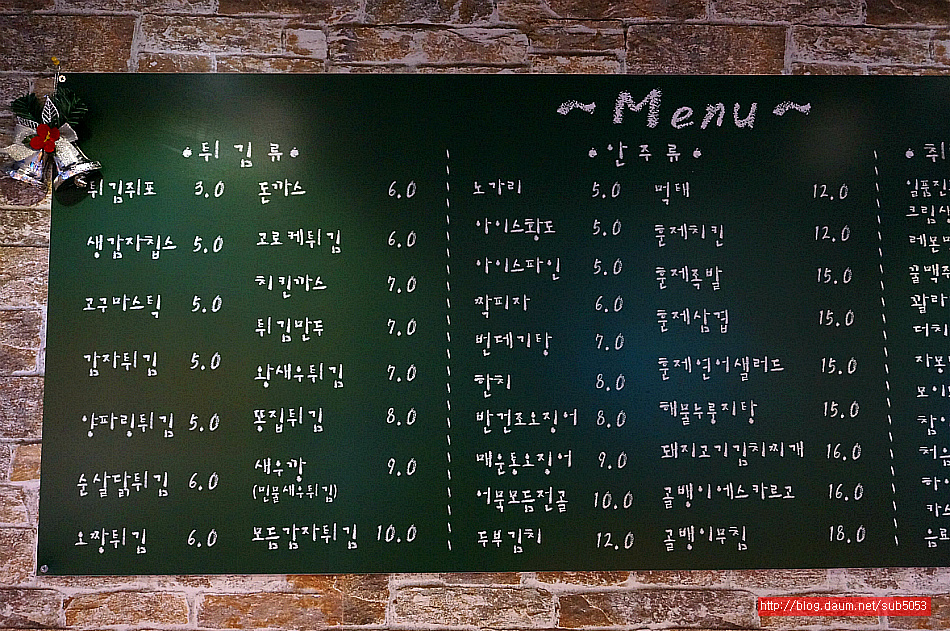 ~ Menu ~
튀 김 류
튀김쥐포 3.0
생감자칩스 5.0
고구마스틱 5.0
감자튀김 5.0
양파링튀김 5.0
순살닭튀김 6.0
오짱튀김 6.0
돈까스 6.0
고로케튀김 6.0
치킨까스 7.0
튀김만두 7.0
왕새우튀김 7.0
똥집튀김 8.0
새우깡 9.0
(민물새우튀김)
모듬감자튀김 10.0
안 주 류
노가리 5.0
아이스황도 5.0
아이스파인 5.0
짝피자 6.0
번데기탕 7.0
한치 8.0
반건조오징어 8.0
매운통오징어 9.0
어묵모듬전골 10.0
두부김치 12.0
먹태 12.0
훈제치킨 12.0
훈제족발 15.0
훈제삼겹 15.0
훈제연어샐러드 15.0
해물누룽지탕 15.0
돼지고기김치찌개 16.0
골뱅이에스카르고 16.0
골뱅이무침 18.0
취
일품진
크림생
레몬
꿀맥주
콜라
더치
자몽
모이
참
처음
하이
카스
음료
http://blog.daum.net/sub5053